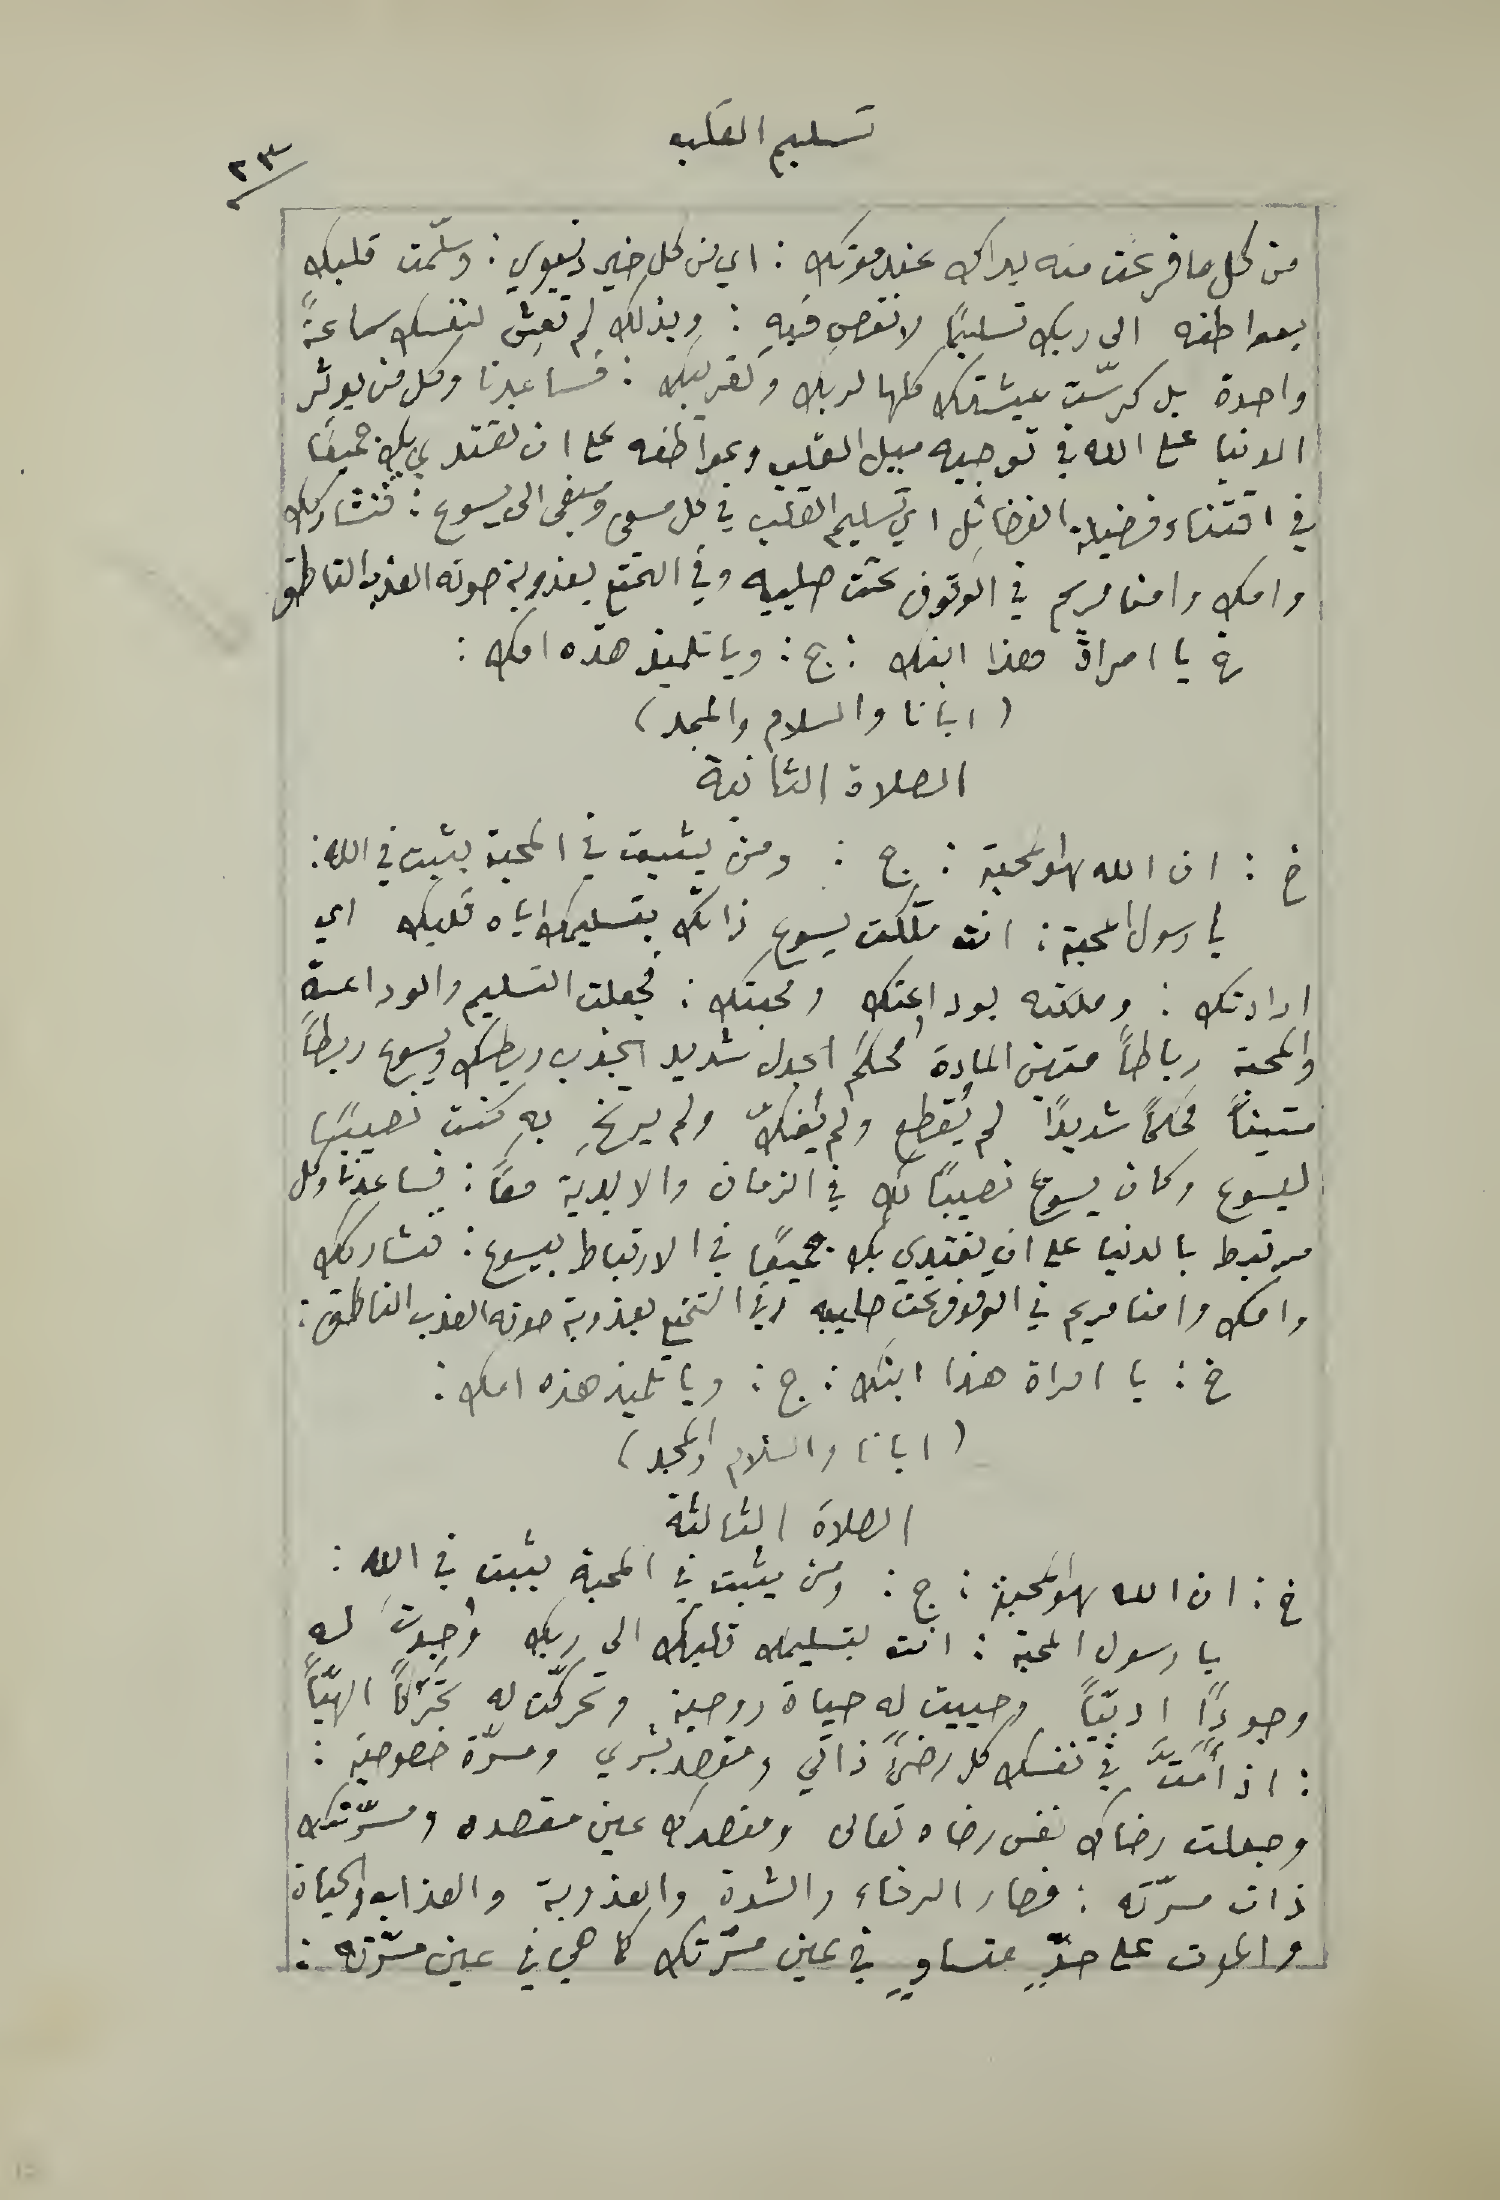 تسليم القلب
٢٣
من كل ما فرغت منه يداك عند موتك : اي من كل خير دنيوي : وسلّمت قلبك
بعواطفه الى ربك تسليمًا لا نقص فيه : وبذلك لم تعش لنفسك ساعةً
واحدة بل كرسّت عيشتك كلها لربك وقريبك : فساعدنا وكل من يوثر
الدنيا على الله في توجيه ميل القلب وعواطفه على ان نقتدي بك جميعًا
في اقتناء فضيلة الفضائل اي تسليم القلب في كل مسعى ومبغى الى يسوع : فنشاركك
وامك وامنا مريم في الوقوف تحت صليبه وفي التمتع بعذوبة صوته العذب الناطق
خ يا امراة هذا ابنك : ج : ويا تلميذ هذه امك :
( ابانا والسلام والمجد )
الصلاة الثانية
خ : ان الله هو المحبة : ج : ومن يثبت في المحبة يثبت في الله :
يا رسول المحبة : انت ملّكت يسوع ذاتك بتسليمك اياه قلبك اي
ارادتك : وملكته بوداعتك ومحبتك : فجعلت التسليم والوداعة
والمحبة رباطاً متين المادة محكم الجدل شديد الجذب ربطك ويسوع ربطاً
متيناً محكمًا شديدًا لم يُقطع ولم يُفكّ ولم يرتخِ بهِ كنت نصيبًا
ليسوع وكان يسوع نصيبًا لك في الزمان والابدية معًا : فساعدنا وكل
مرتبط بالدنيا على ان يقتدي بك جميعًا في الارتباط بيسوع : فنشاركك
وامك وامنا مريم في الوقوف تحت صليبه وفي التمتع بعذوبة صوته العذب الناطق :
خ : يا امراة هذا ابنك : ج : ويا تلميذ هذه امك :
( ابانا والسلام والمجد )
الصلاة الثالثة
خ : ان الله هو المحبة : ج : ومن يثبت في المحبة يثبت في الله :
يا رسول المحبة : انت بتسليمك قلبك الى ربك وُجدتَ له
وجودًا ادبيّاً وحييت له حياة روحية وتحركّت له تحرّكاً الهيّاً
: اذ أَمَتَّ في نفسك كل رضىً ذاتي ومقصد بشري ومسرّة خصوصية :
وجعلت رضاك نفس رضاه تعالى ومقصدك عين مقصده ومسرّتك
ذات مسرّته : فصار الرخاء والشدة والعذوبة والعذاب والحياة
والموت على حدٍّ متساوٍ في عين مسرّتك كما هي في عين مسرّته :